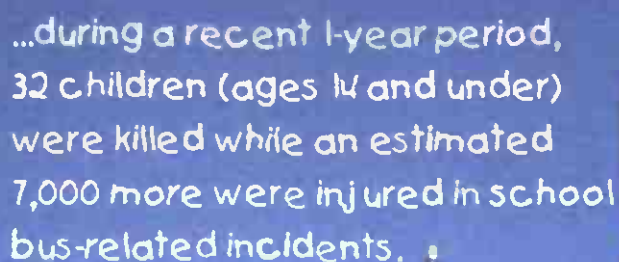 ...during a recent 1-year period,
32 children (ages 14 and under)
were killed while an estimated
7,000 more were injured in school
bus-related incidents.